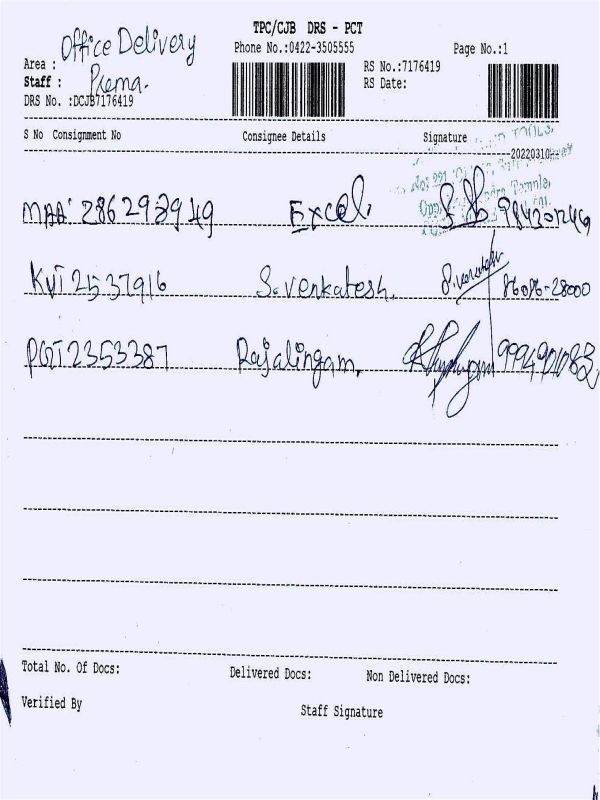 TPC/CJB DRS - PCT
Office Delivery
Phone No.:0422-3505555
Page No.:1
Area :
RS No.:7176419
Staff : Prema.
RS Date:
DRS No. :DCJB7176419
S No Consignment No Consignee Details Signature
20220310
MAA 286293949 Excel
KVI 2537916 S. Venkatesh. 86086-28000
PGT2353387 Rajalingam.
Total No. Of Docs: Delivered Docs: Non Delivered Docs:
Verified By Staff Signature